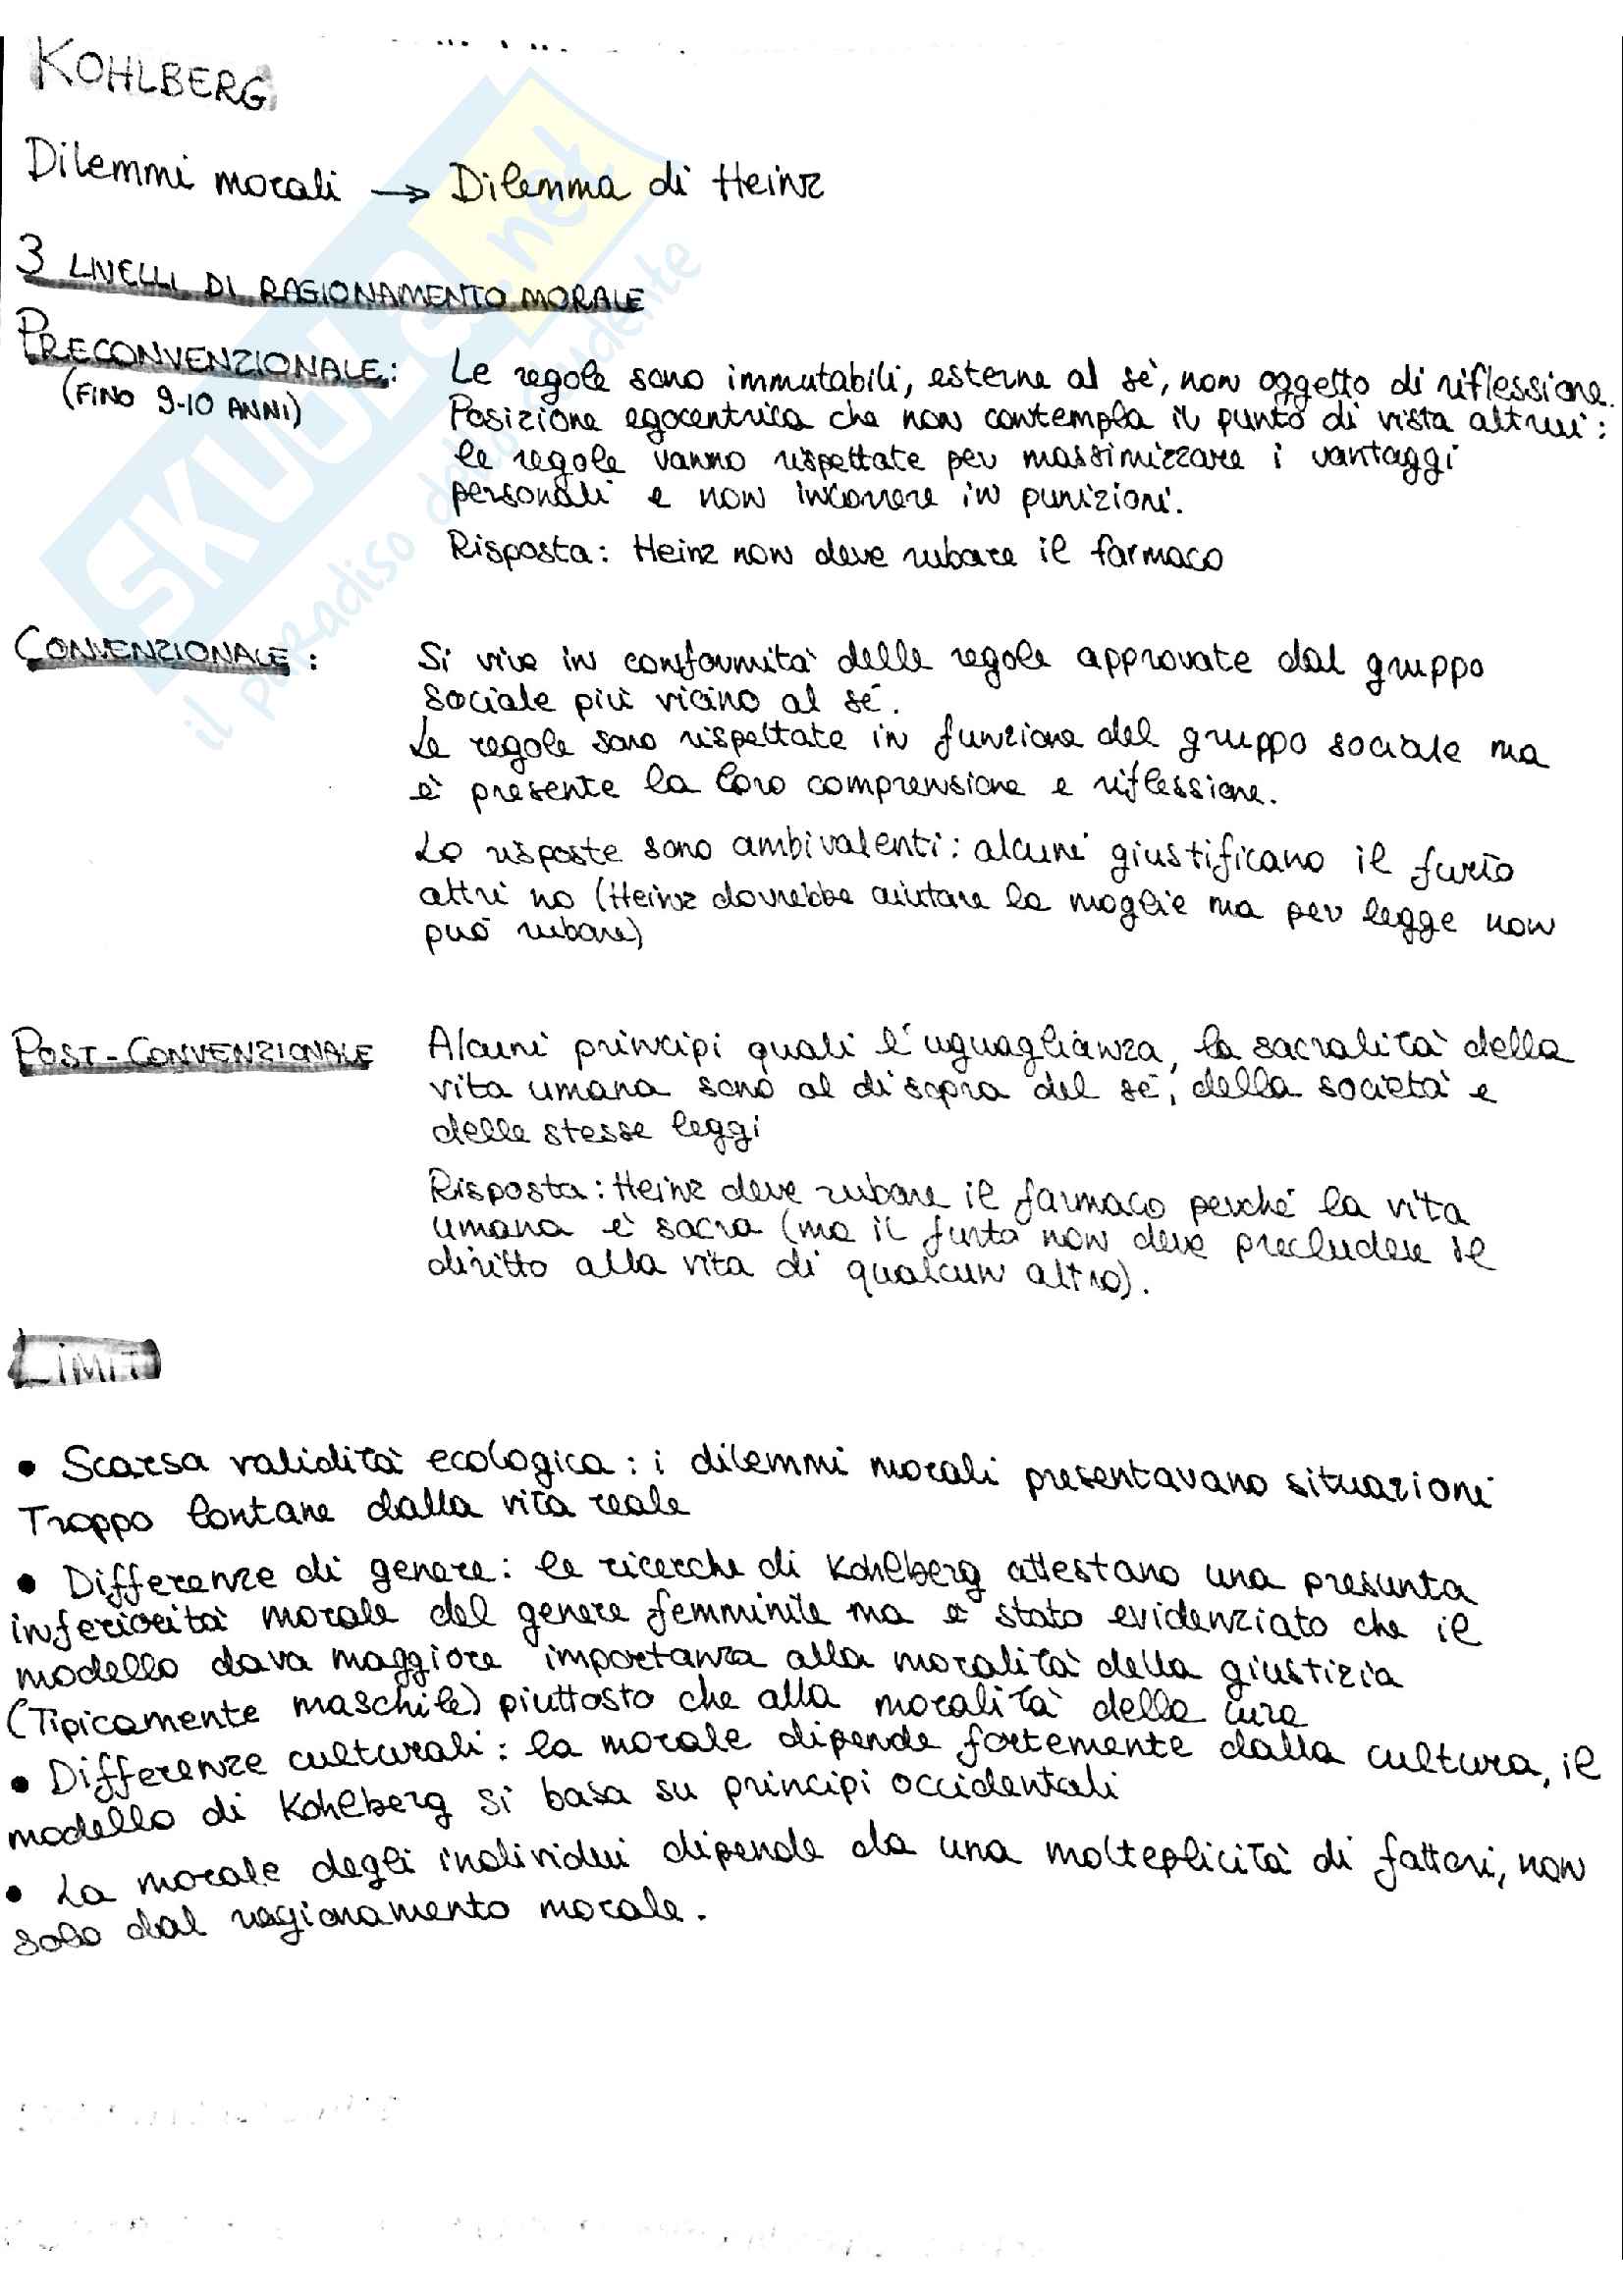 KOHLBERG
Dilemmi morali → Dilemma di Heinz
3 LIVELLI DI RAGIONAMENTO MORALE
PRECONVENZIONALE: Le regole sono immutabili, esterne al sé, non oggetto di riflessione.
(FINO 9-10 ANNI) Posizione egocentrica che non contempla il punto di vista altrui:
le regole vanno rispettate per massimizzare i vantaggi
personali e non incorrere in punizioni.
Risposta: Heinz non deve rubare il farmaco
CONVENZIONALE: Si vive in conformità delle regole approvate dal gruppo
sociale più vicino al sé.
Le regole sono rispettate in funzione del gruppo sociale ma
è presente la loro comprensione e riflessione.
Le risposte sono ambivalenti: alcuni giustificano il furto
altri no (Heinz dovrebbe aiutare la moglie ma per legge non
può rubare)
POST-CONVENZIONALE Alcuni principi quali l'uguaglianza, la sacralità della
vita umana sono al di sopra del sé, della società e
delle stesse leggi
Risposta: Heinz deve rubare il farmaco perché la vita
umana è sacra (ma il furto non deve precludere il
diritto alla vita di qualcun altro).
LIMITI
• Scarsa validità ecologica: i dilemmi morali presentavano situazioni
Troppo lontane dalla vita reale
• Differenze di genere: le ricerche di Kohlberg attestano una presunta
inferiorità morale del genere femminile ma è stato evidenziato che il
modello dava maggiore importanza alla moralità della giustizia
(Tipicamente maschile) piuttosto che alla moralità della cura
• Differenze culturali: la morale dipende fortemente dalla cultura, il
modello di Kohlberg si basa su principi occidentali
• La morale degli individui dipende da una molteplicità di fattori, non
solo dal ragionamento morale.
SKUOLA.net
il paradiso dello studente